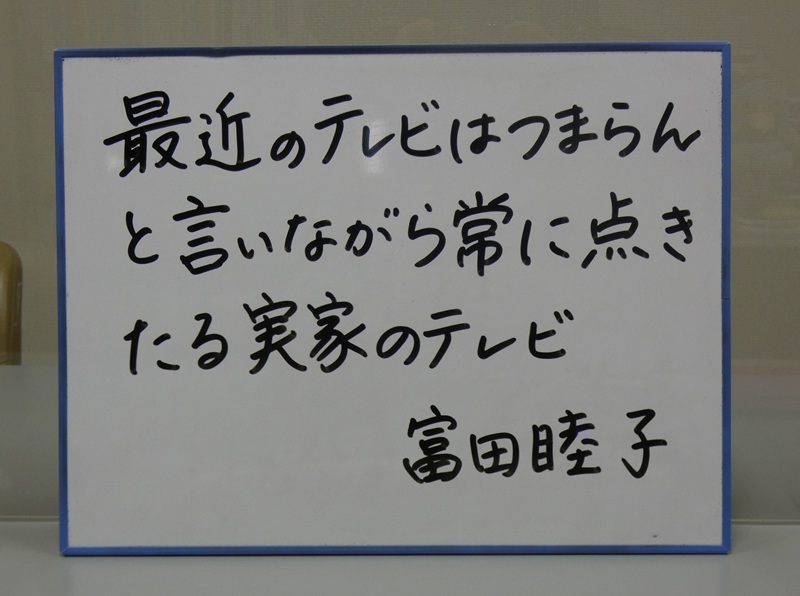 最近のテレビはつまらん
と言いながら常に点き
たる実家のテレビ
富田睦子